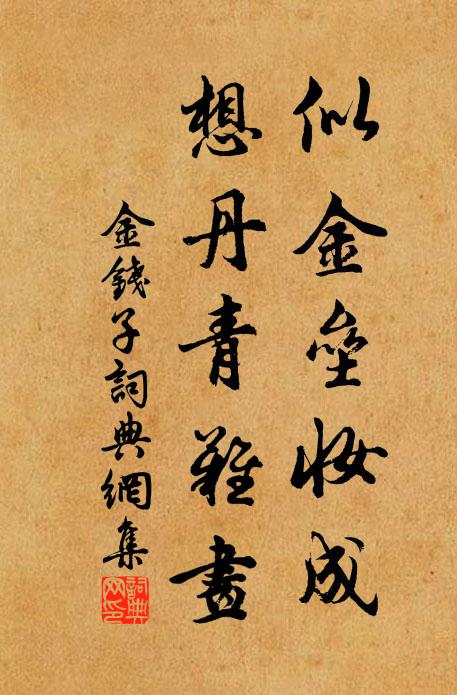 似金壘妝成
想丹青難畫
金錢子詞典網集
詞典網印